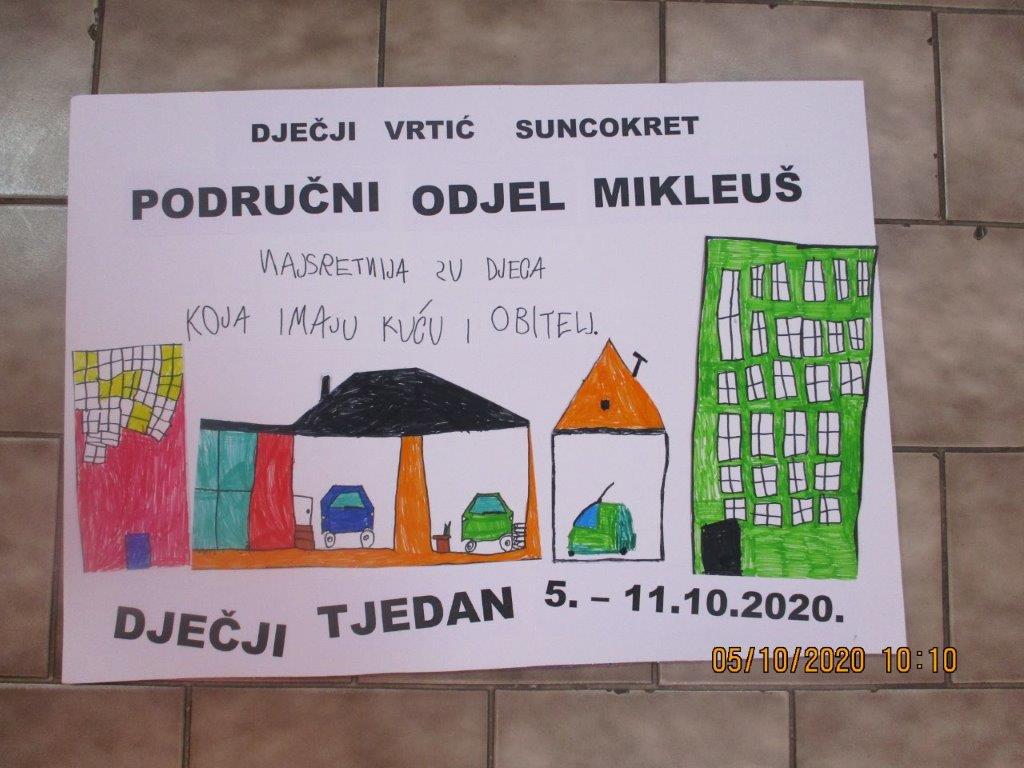 DJEČJI VRTIĆ SUNCOKRET
PODRUČNI ODJEL MIKLEUŠ
NAJSRETNIJA SU DJECA
KOJA IMAJU KUĆU I OBITELJ.
DJEČJI TJEDAN 5. – 11.10.2020.
05/10/2020 10:10